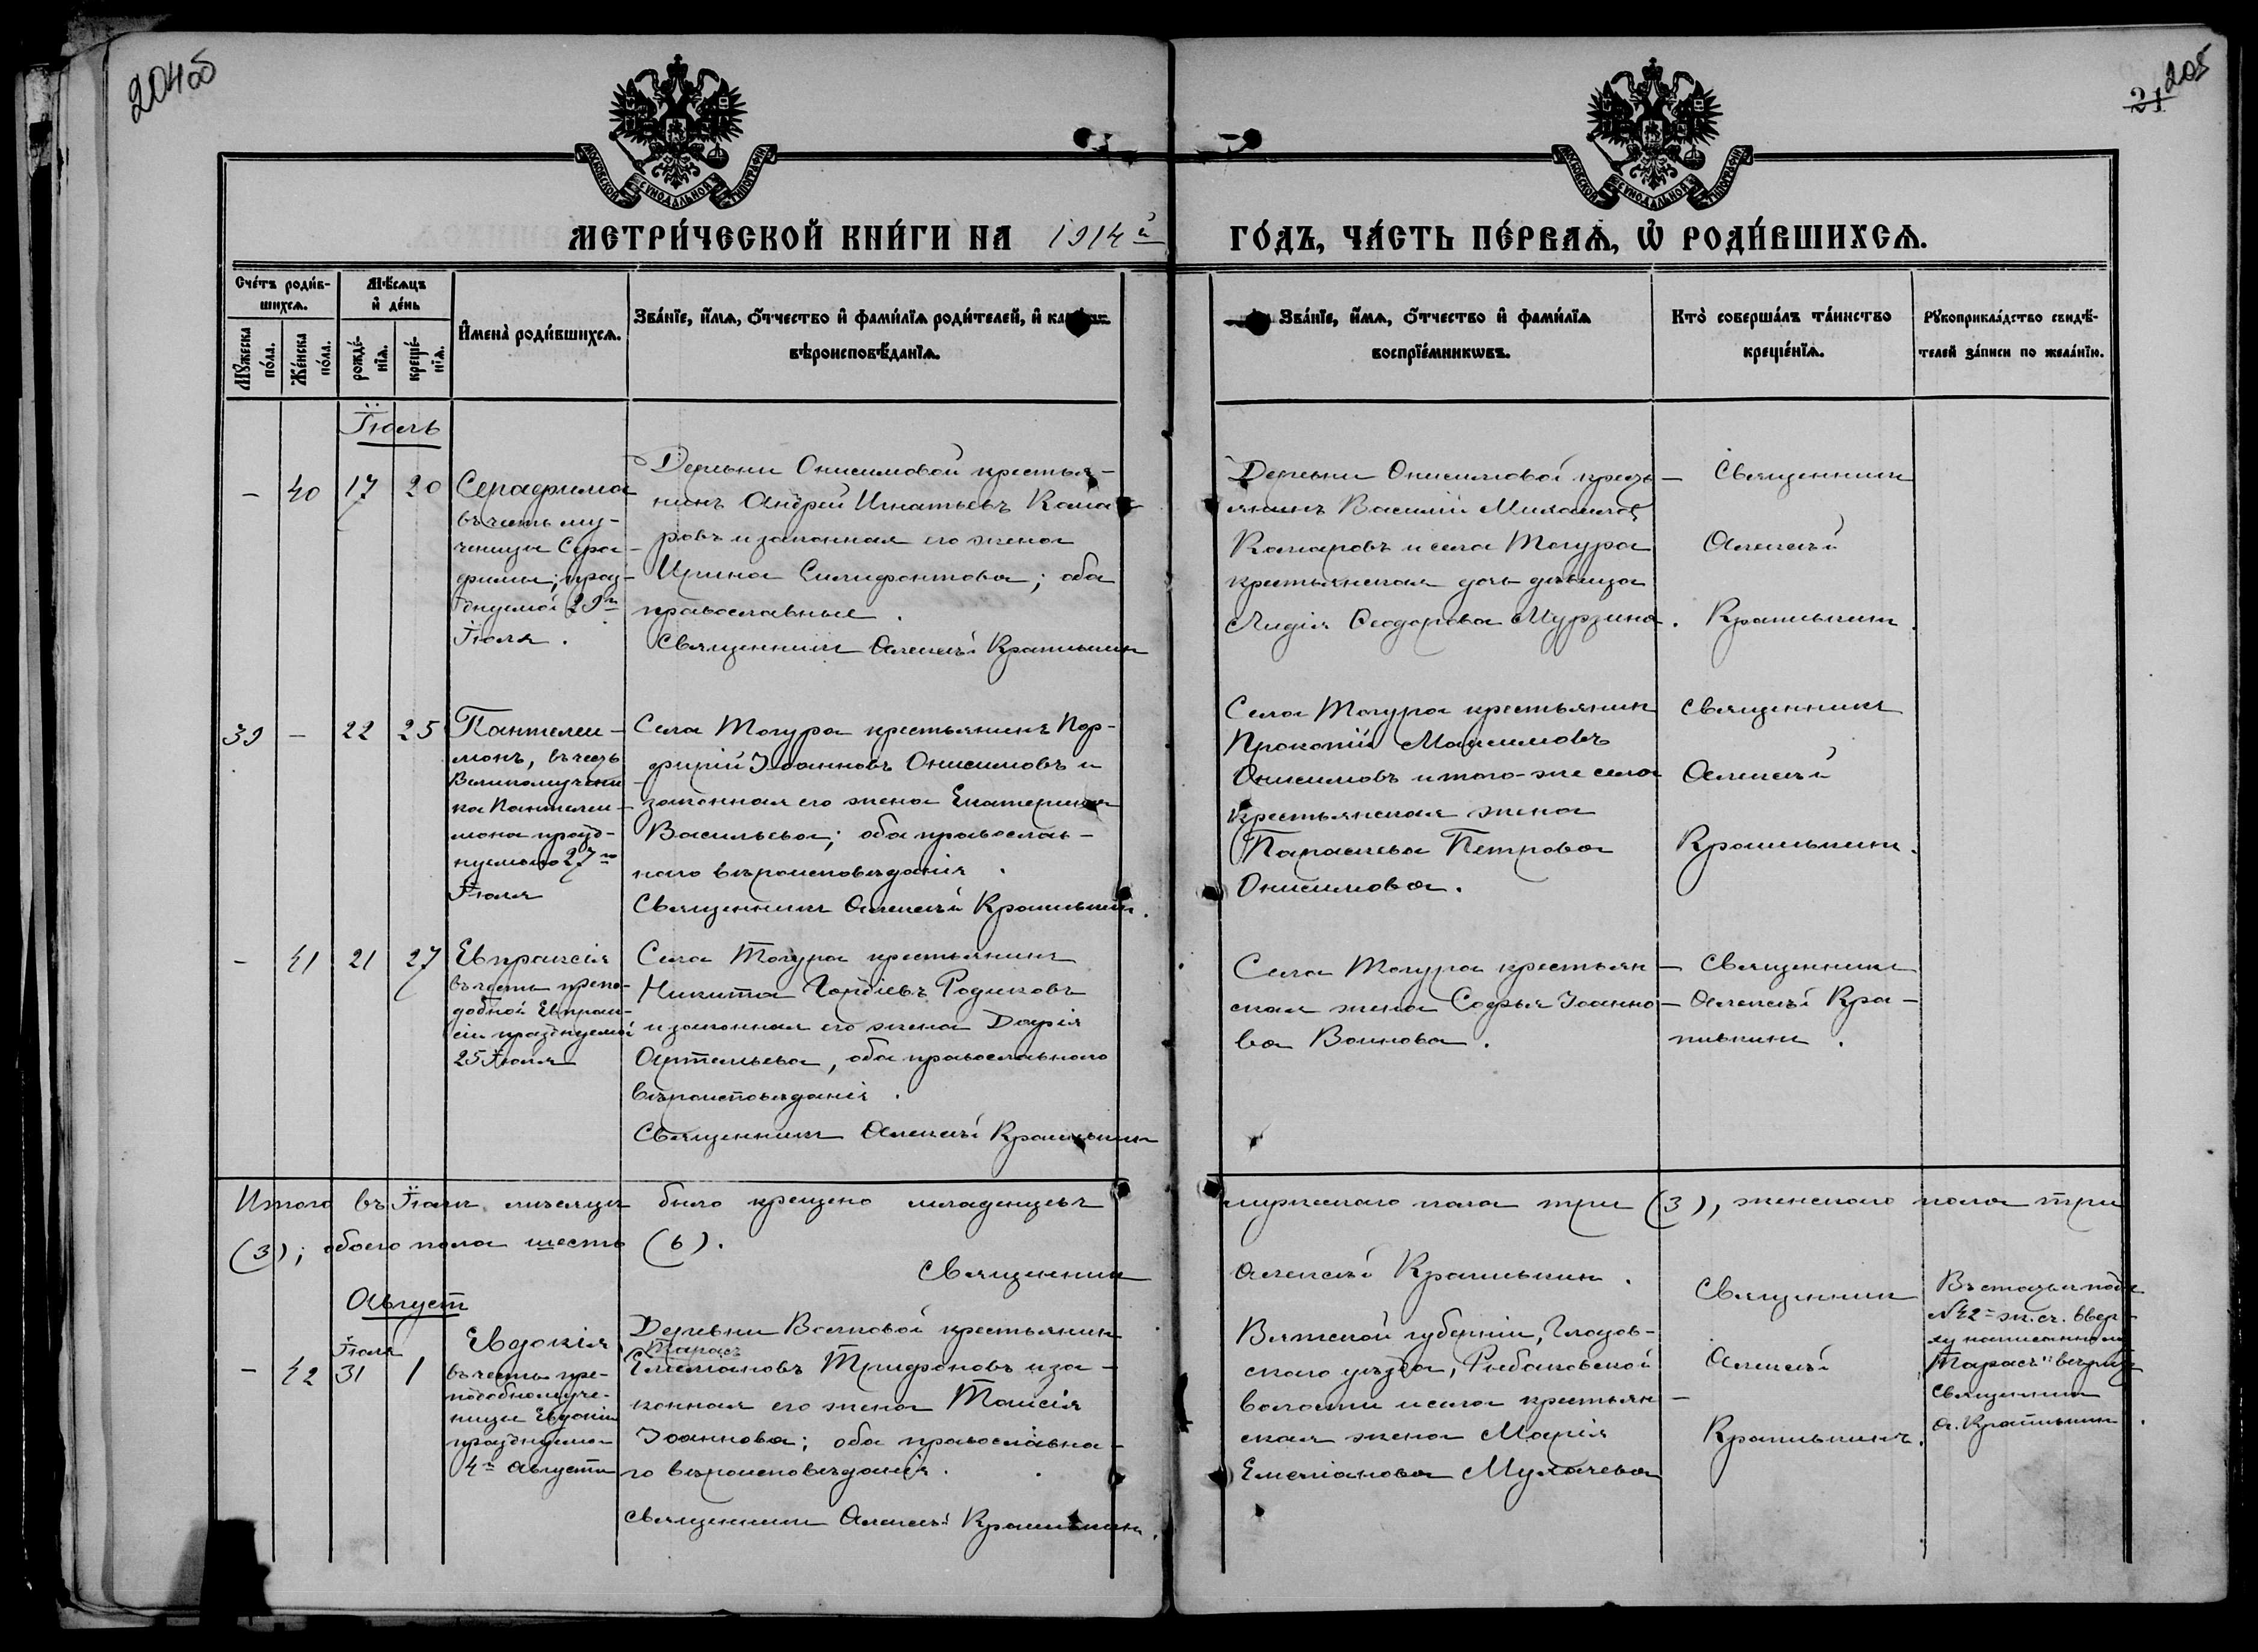 204об
21 205
МОСКОВСКОЙ СѴНОДАЛЬНОЙ ТИПОГРАФІИ
МОСКОВСКОЙ СѴНОДАЛЬНОЙ ТИПОГРАФІИ
МЕТРИ́ЧЕСКОЙ КНИ́ГИ НА 1914й
ГО́ДЪ, ЧА́СТЬ ПЕ́РВАѦ, Ѡ РОДИ́ВШИХСѦ.
Сче́тъ роди́в-
шихсѧ.
Мꙋ́жеска по́ла.
Же́нска по́ла.
Мѣ́сѧцъ
и҆ де́нь
рожде́-нїѧ.
креще́-нїѧ.
И҆мена̀ роди́вшихсѧ.
Зва́нїе, и҆́мѧ, ѻ҆́тчество и҆ фами́лїѧ роди́телей, и҆
вѣроисповѣ́данїѧ.
Зва́нїе, и҆́мѧ, ѻ҆́тчество и҆ фами́лїѧ
воспрїе́мникѡвъ.
Кто̀ соверша́лъ та́инство
креще́нїѧ.
Рꙋкоприкла́дство свидѣ́-
телей за́писи по жела́нїю.
Іюль
- 40 17 20
Серафима
въ честь му-
ченицы Сера-
фимы; празд-
днуемой 29го
Іюля.
Деревни Онисимовой крестья-
нинъ Андрей Игнатьевъ Кома
ровъ и законная его жена
Ирина Силифонтова; оба
православные.
Священникъ Алексѣй Крапивкин
Деревни Онисимовой кресть-
янинъ Василій Михаилов
Комаровъ и села Тогура
крестьянская дочь дѣвица
Лидія Ѳеодорова Мурзина.
Священникъ
Алексѣй
Крапивкинъ.
39 - 22 25
Пантелеи-
монъ, въ честь
Великомучени
ка Пантелеи-
мона празд-
нуемаго 27го
Іюля
Села Тогура крестьянинъ Пор-
фирій Іоанновъ Онисимовъ и
законная его жена Екатерина
Васильева; оба православ-
наго вѣроисповѣданія.
Священникъ Алексѣй Крапивкин.
Села Тогура крестьянин
Прокопій Максимовъ
Онисимовъ и того-же села
крестьянская жена
Параскева Петрова
Онисимова.
Священникъ
Алексѣй
Крапивкинъ.
- 41 21 27
Евпраксія
въ честь препо-
добной Евпрак-
сіи празднуемой
25 Іюля
Села Тогура крестьянинъ
Никита Гордіевъ Родиковъ
и законная его жена Дарія
Артемьева, оба православнаго
вѣроисповѣданія.
Священникъ Алексѣй Крапивкин
Села Тогура крестьян-
ская жена Софья Іоанно-
ва Воинова.
Священникъ
Алексѣй Кра-
пивкинъ.
Итого въ Іюлѣ мѣсяцѣ было крещено младенцевъ мужескаго пола три (3), женскаго пола три
(3); обоего пола шесть (6).
Священник
Алексѣй Крапивкин.
Август
Іюля
- 42 31 1
Евдокія
въ честь пре-
подобномуче-
ницы Евдокіи
празднуемой
4го Августа
Деревни Волковой крестьянин
Тарасъ
Емеліановъ Трифоновъ и за-
конная его жена Таисія
Іоаннова; оба православна-
го вѣроисповѣданія.
Священникъ Алексѣй Крапивкин.
Вятской губерніи, Глазов-
скаго уѣзда, Рыбаковской
волости и села крестьян-
ская жена Марія
Емеліанова Мухачева
Священник
Алексѣй
Крапивкинъ.
Въ статьѣ подъ
№42 ж. сч. ввер-
ху написанному
"Тарасъ" вѣрить
Священникъ
А. Крапивкин.